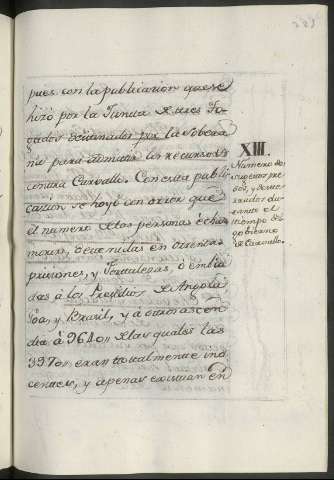 pues con la publicacion que se
hizo por la Junta de tres Jo-
gados destinados por la Sobera
na para admitir los recursos
contra Carvallo. Con esta publi
cacion se royó con orror que
el numero de las personas êcha
morir, ô detenidas en
prisiones, y Fortalezas, ô embia
das â los Presidios de Angola
Goa, y Brasil, y â otros
dia â 9640,, de las quales las
3970,, eran totalmente ino
centes, y apenas existian en
XIII.
Numero de
sugetos pre
sos, y dester
rados du
rante el
tiempo del
gobierno
de Carvallo.